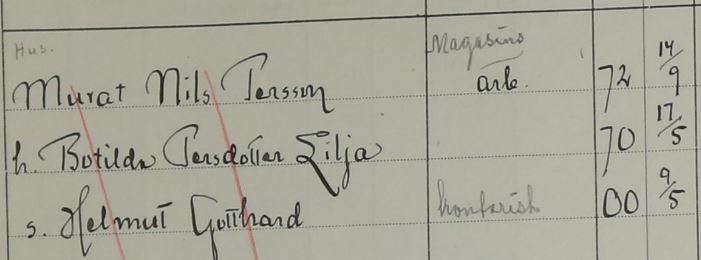 Hus. Magasins
Murat Nils Persson arb. 72 14/9
h. Botilda Persdotter Lilja 70 17/5
s. Helmut Gotthard kontorist 00 9/5